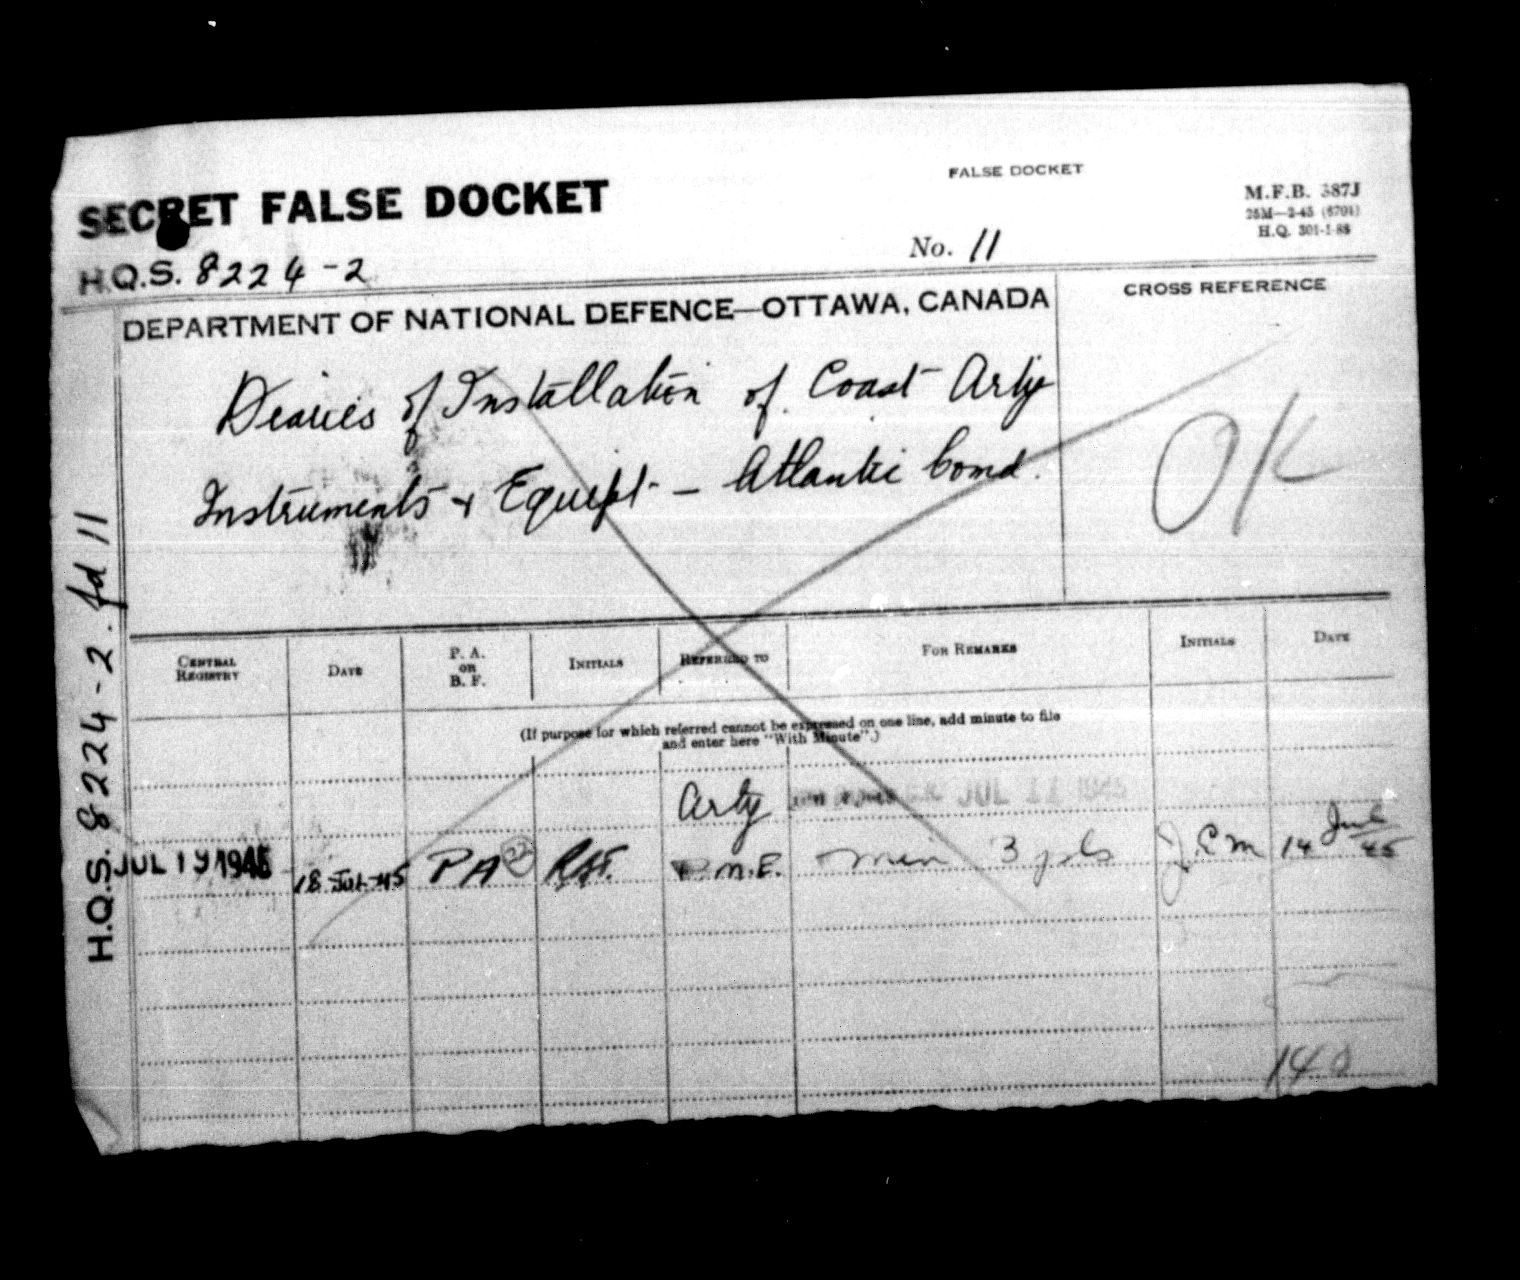 FALSE DOCKET
SECRET FALSE DOCKET
M.F.B. 387J
25M—2-45 (6701)
H.Q. 301-1-88
No. 11
H.Q.S. 8224-2
DEPARTMENT OF NATIONAL DEFENCE—OTTAWA, CANADA
CROSS REFERENCE
Diaries of Installation of Coast Arty
Instruments & Equipt - Atlantic Comd.
OK
H.Q.S. 8224-2. fd 11
CENTRAL REGISTRY DATE P. A. OR B. F. INITIALS REFERRED TO FOR REMARKS INITIALS DATE
(If purpose for which referred cannot be expressed on one line, add minute to file
and enter here "With Minute".)
Arty JUL 11 1945
JUL 19 1945 18 JUL 45 PA 22 M.E. min 3 J.E.M 14 Jul 45
140